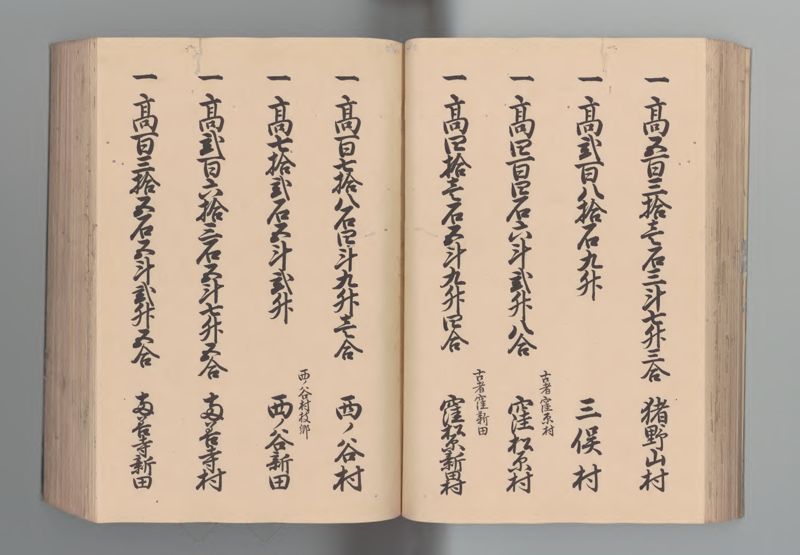 一 高五百三拾壱石三斗七升三合 猪野山村
一 高弐百八拾石九升 三俣村
古者窪原村
一 高四百四石六斗弐升八合 窪松原村
古者窪新田
一 高四拾壱石五斗九升四合 窪松原新田村
一 高百七拾八石四斗九升壱合 西ノ谷村
西ノ谷村枝郷
一 高七拾弐石五斗弐升 西ノ谷新田
一 高弐百六拾三石五斗七升五合 善寺村
一 高百三拾五石五斗弐升五合 善寺新田